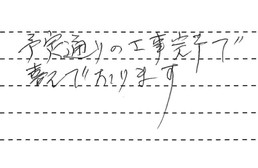 予定通りの工事完了で
喜んでおります